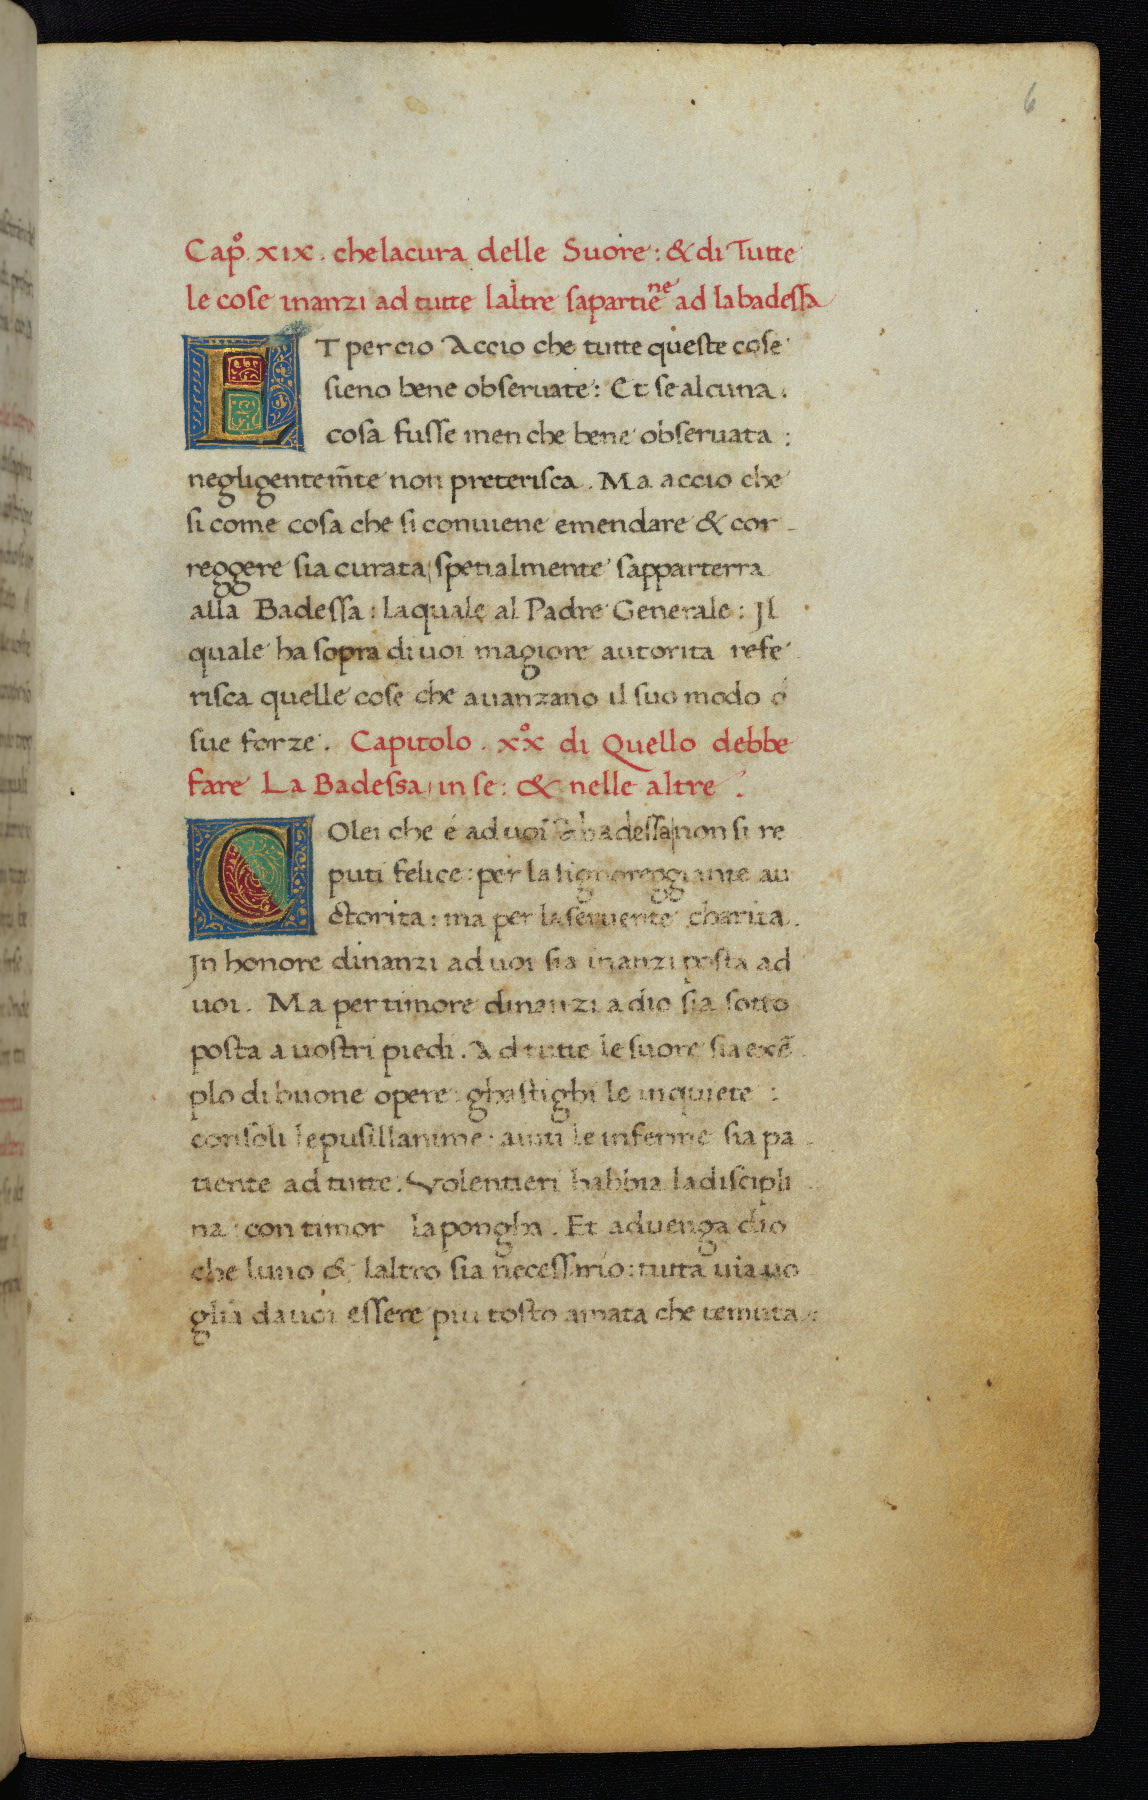 6
Capº. xix. che la cura delle Suore: & di Tutte
le cose inanzi ad tutte laltre sapartiene ad la badessa
ET per cio Accio che tutte queste cose
sieno bene obseruate: Et se alcuna.
cosa fusse men che bene obseruata:
negligentem̃te non preterisca. Ma accio che
si come cosa che si conuiene emendare & cor-
reggere sia curata, spetialmente sapparterra
alla Badessa: la quale al Padre Generale: Il
quale ha sopra di uoi magiore autorita refe
risca quelle cose che auanzano il suo modo o
sue forze. Capitolo. xxº di Quello debbe
fare La Badessa, in se: & nelle altre.
COlei che é ad uoi Abadessa non si re
puti felice: per la signoreggiante au
ctorita: ma per la seruente charita.
In honore dinanzi ad uoi sia inanzi posta ad
uoi. Ma per timore dinanzi a dio sia sotto
posta a uostri piedi. Ad tutte le suore sia exẽ
plo di buone opere: ghastighi le inquiete:
consoli le pusillanime: aiuti le inferme sia pa
tiente ad tutte. Volentieri habbia la discipli
na: con timor la pongha. Et aduenga dio
che luno & laltro sia necessario: tutta uia uo
glia da uoi essere piu tosto amata che temuta: